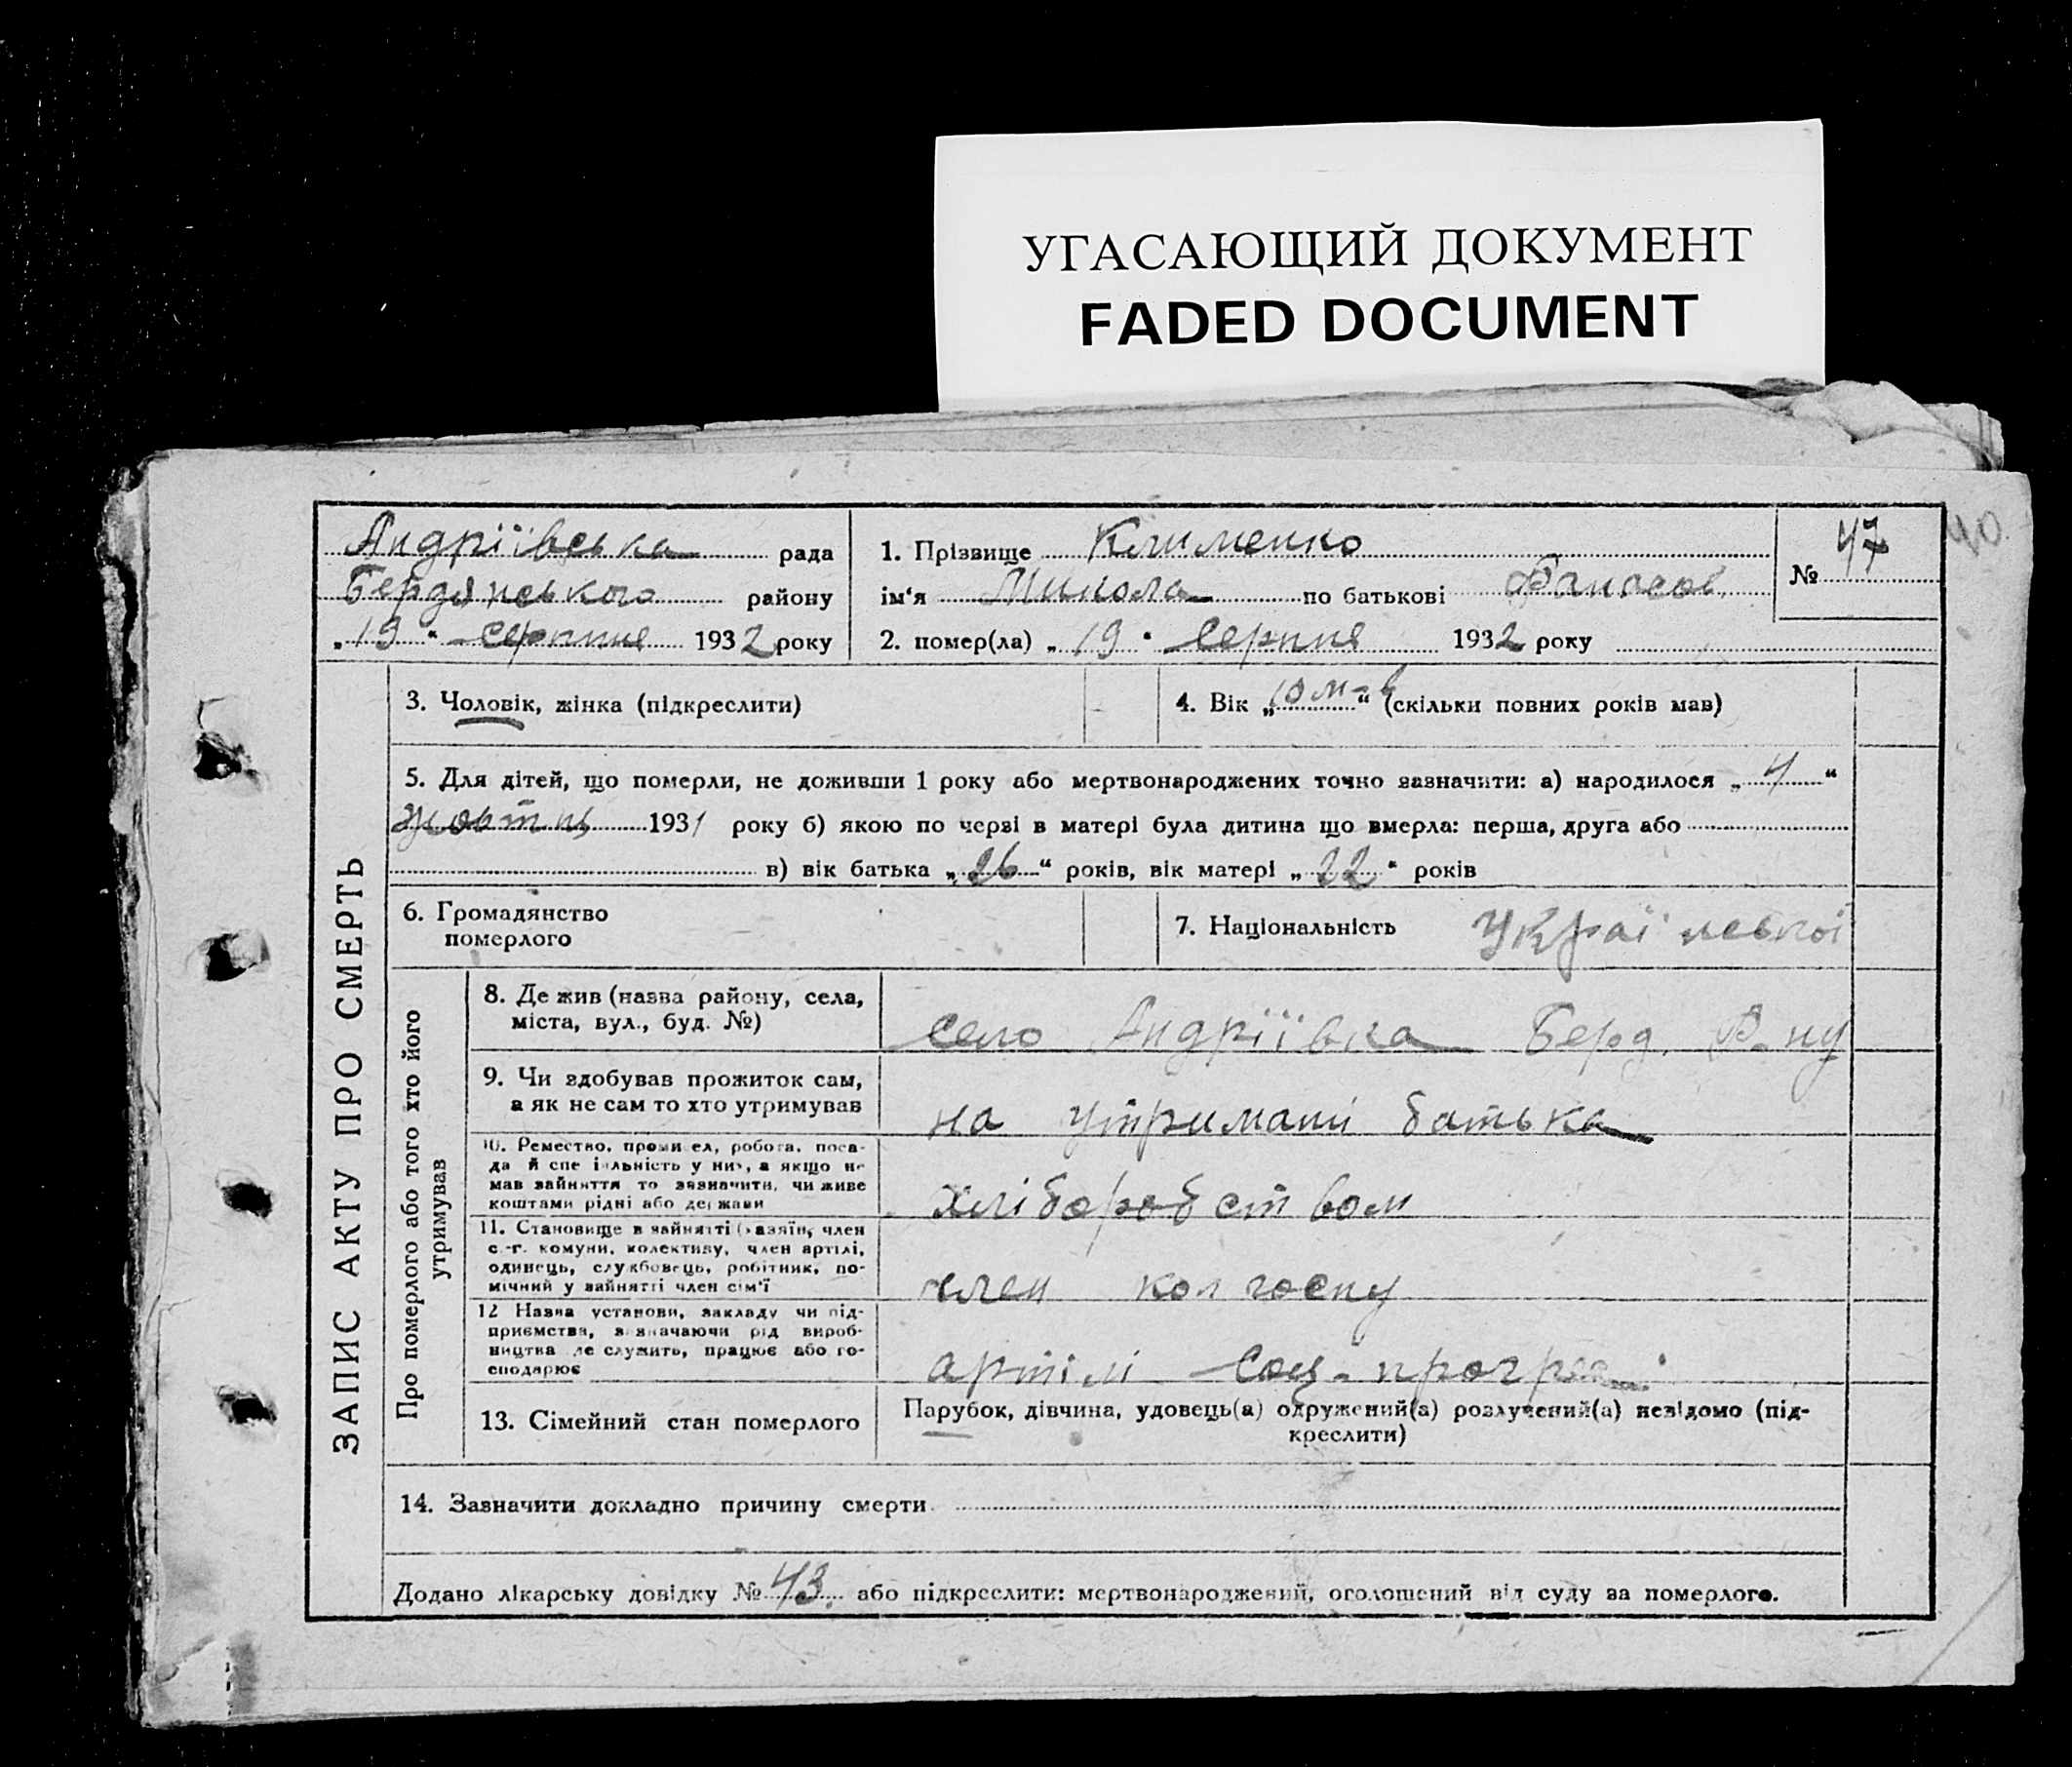 УГАСАЮЩИЙ ДОКУМЕНТ
FADED DOCUMENT
40
Андріївська рада
Бердянського району
„19“ серпня 1932 року
1. Прізвище Клименко
ім'я Микола по батькові Фанасов.
2. помер(ла) „19“ серпня 1932 року
№ 47
ЗАПИС АКТУ ПРО СМЕРТЬ
3. Чоловік, жінка (підкреслити)
4. Вік „10 м-в“ (скільки повних років мав)
5. Для дітей, що померли, не доживши 1 року або мертвонароджених точно зазначити: а) народилося „4“
жовтня 1931 року б) якою по черзі в матері була дитина що вмерла: перша, друга або
в) вік батька „26“ років, вік матері „22“ років
6. Громадянство
померлого
7. Національність Української
Про померлого або того хто його
утримував
8. Де жив (назва району, села,
міста, вул., буд. №)
село Андріївка Берд. Р-ну
9. Чи здобував прожиток сам,
а як не сам то хто утримував
на утримані батька
10. Ремество, промисел, робота, поса-
да й спеціяльність у них, а якщо не
мав зайняття то зазначити, чи живе
коштами рідні або держави
хліборобством
11. Становище в зайнятті (хазяїн, член
с.-г. комуни, колективу, член артілі,
одинець, службовець, робітник, по-
мічний у зайнятті член сім'ї
член колгоспу
12 Назва установи, закладу чи під-
приємства, зазначаючи рід вироб-
ництва де служить, працює або го-
сподарює
артілі Соц-прогрес
13. Сімейний стан померлого
Парубок, дівчина, удовець(а) одружений(а) розлучений(а) невідомо (під-
креслити)
14. Зазначити докладно причину смерти
Додано лікарську довідку № 43 або підкреслити: мертвонароджений, оголошений від суду за померлого.